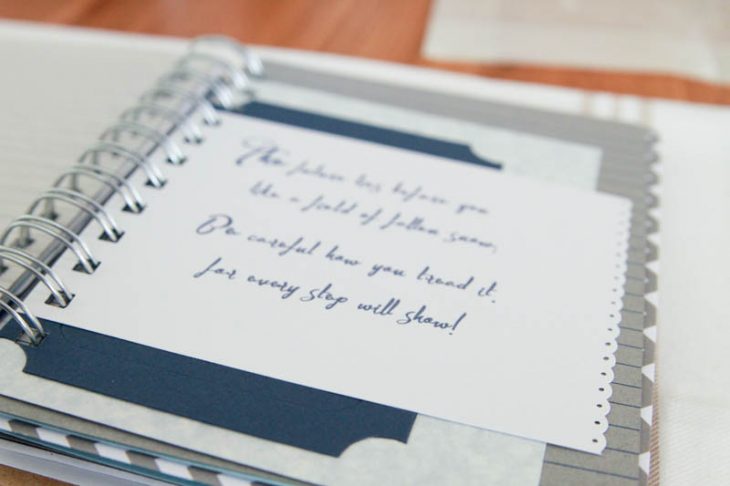 The future lies before you
like a field of fallen snow,
Be careful how you tread it,
for every step will show!